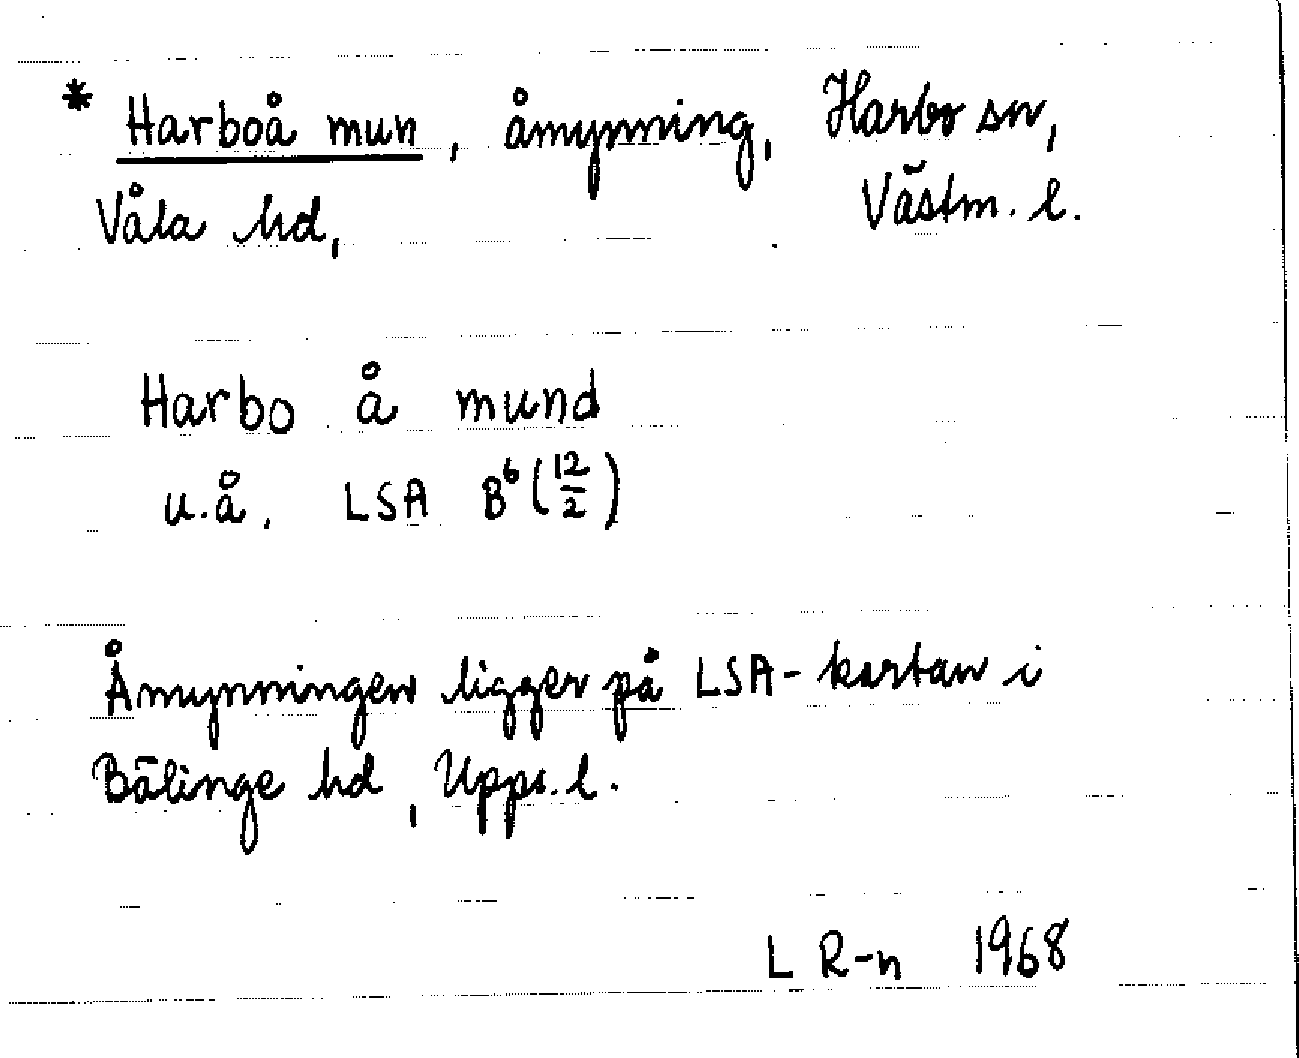 * Harboå mun, åmynning, Harbo sn,
Våla hd, Västm. l.
Harbo å mund
u.å, LSA B⁶ (12/2)
Åmynningen ligger på LSA-kartan i
Bälinge hd, Upps. l.
L R-n 1968